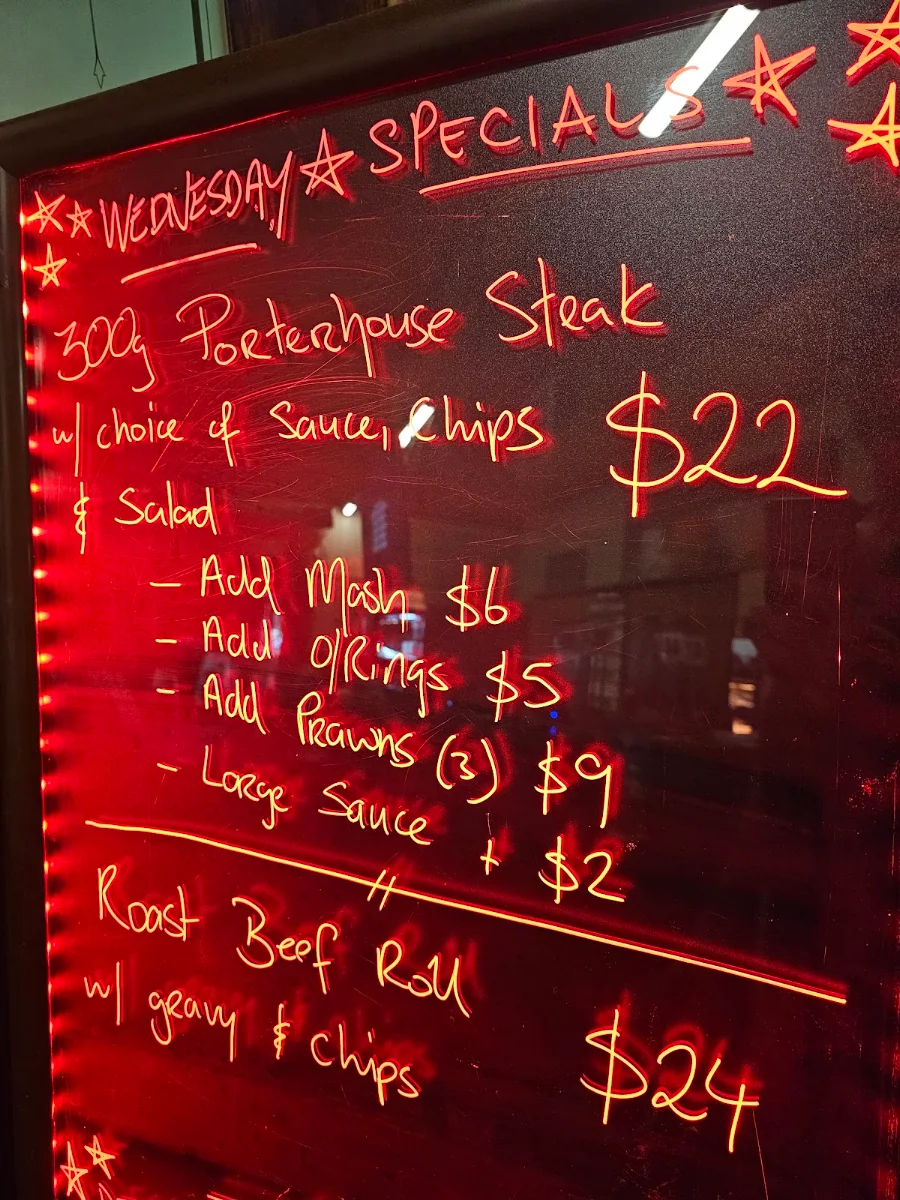 WEDNESDAY SPECIALS
300g Porterhouse Steak
w/ choice of Sauce, Chips $22
& Salad
- Add Mash $6
- Add O/Rings $5
- Add Prawns (3) $9
- Large Sauce + $2
Roast Beef Roll
w/ gravy & chips $24